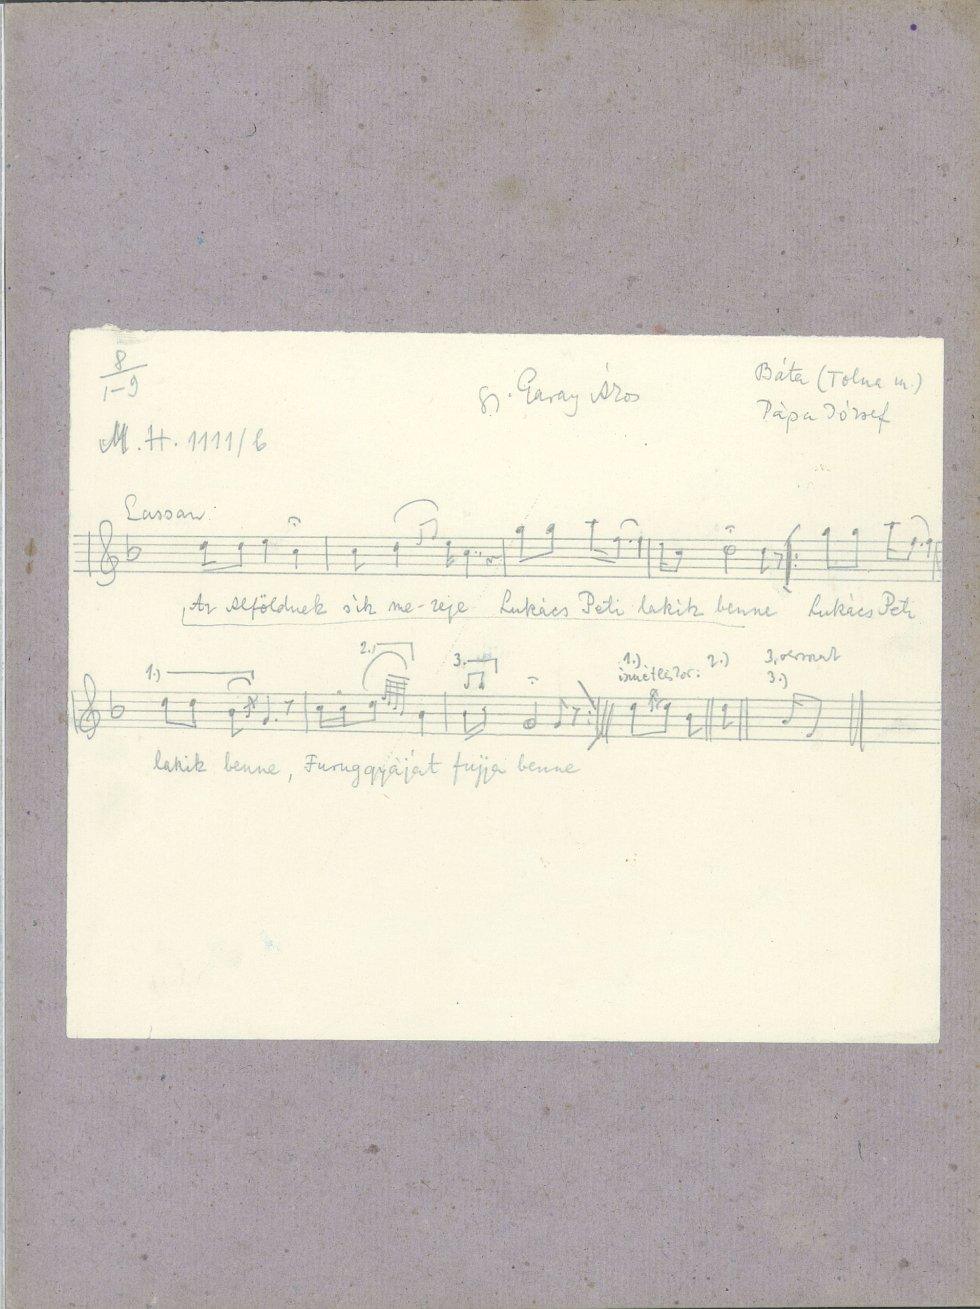 8
1-9
gy. Garay Ákos
Báta (Tolna m.)
Pápa József
M. H. 1111/b
Lassan
Az Alföldnek sík me-zeje Lukács Peti lakik benne Lukács Peti
1.) 2.) 3. 1.) 2.) 3. versnél
ismétléskor: 3.)
lakik benne, Furuggyáját fujja benne